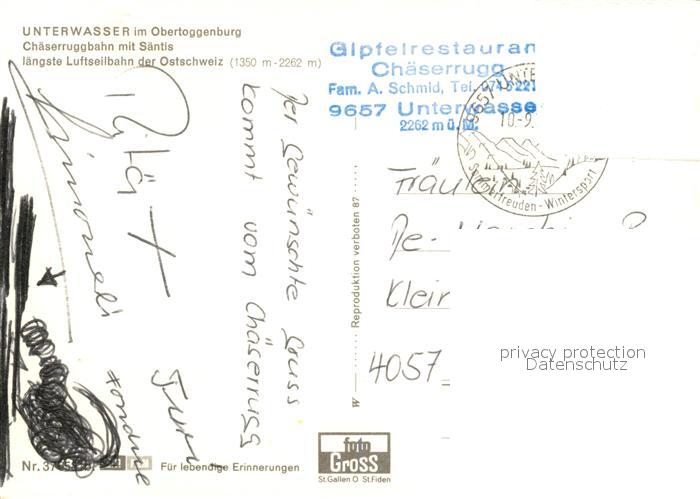 UNTERWASSER im Obertoggenburg
Chäserruggbahn mit Säntis
längste Luftseilbahn der Ostschweiz (1350 m - 2262 m)
Gipfelrestauran
Chäserrugg
Fam. A. Schmid, Tel.
9657 Unterwasse
2262 m ü. M.
9657 UNTE
10-9.
Sommerfreuden - Wintersport
Der gewünschte Gruss
kommt vom Chäserrugg
Fräulein
De-
Klein
4057
Reproduktion verboten 87
privacy protection
Datenschutz
Für lebendige Erinnerungen
foto
GROSS
St.Gallen O St.Fiden